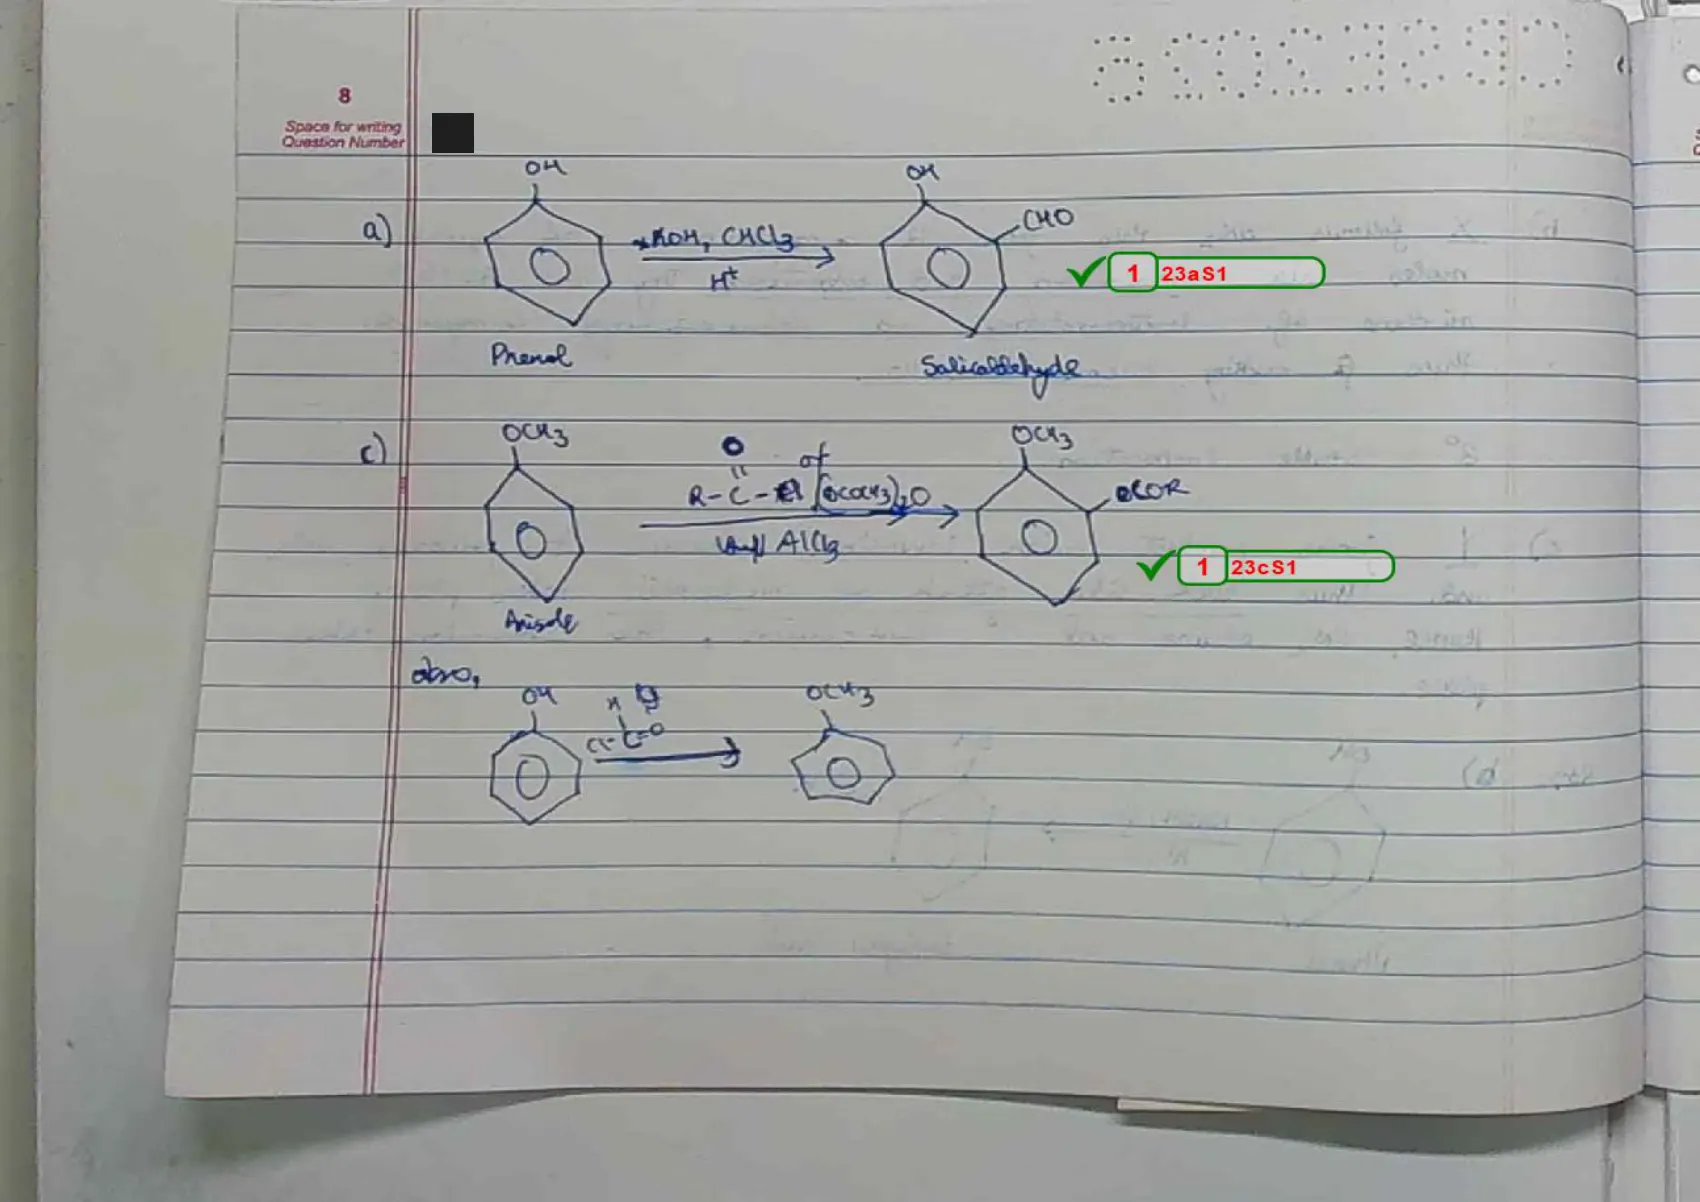 8
Space for writing
Question Number
a)
OH
KOH, CHCl3
H+
OH
CHO
✓ 1 23aS1
Phenol
Salicaldehyde
c)
OCH3
O
R-C-Cl or (OCOCH3)2O
AlCl3
OCH3
COR
✓ 1 23cS1
Anisole
also,
OH
H
Cl-C=O
OCH3